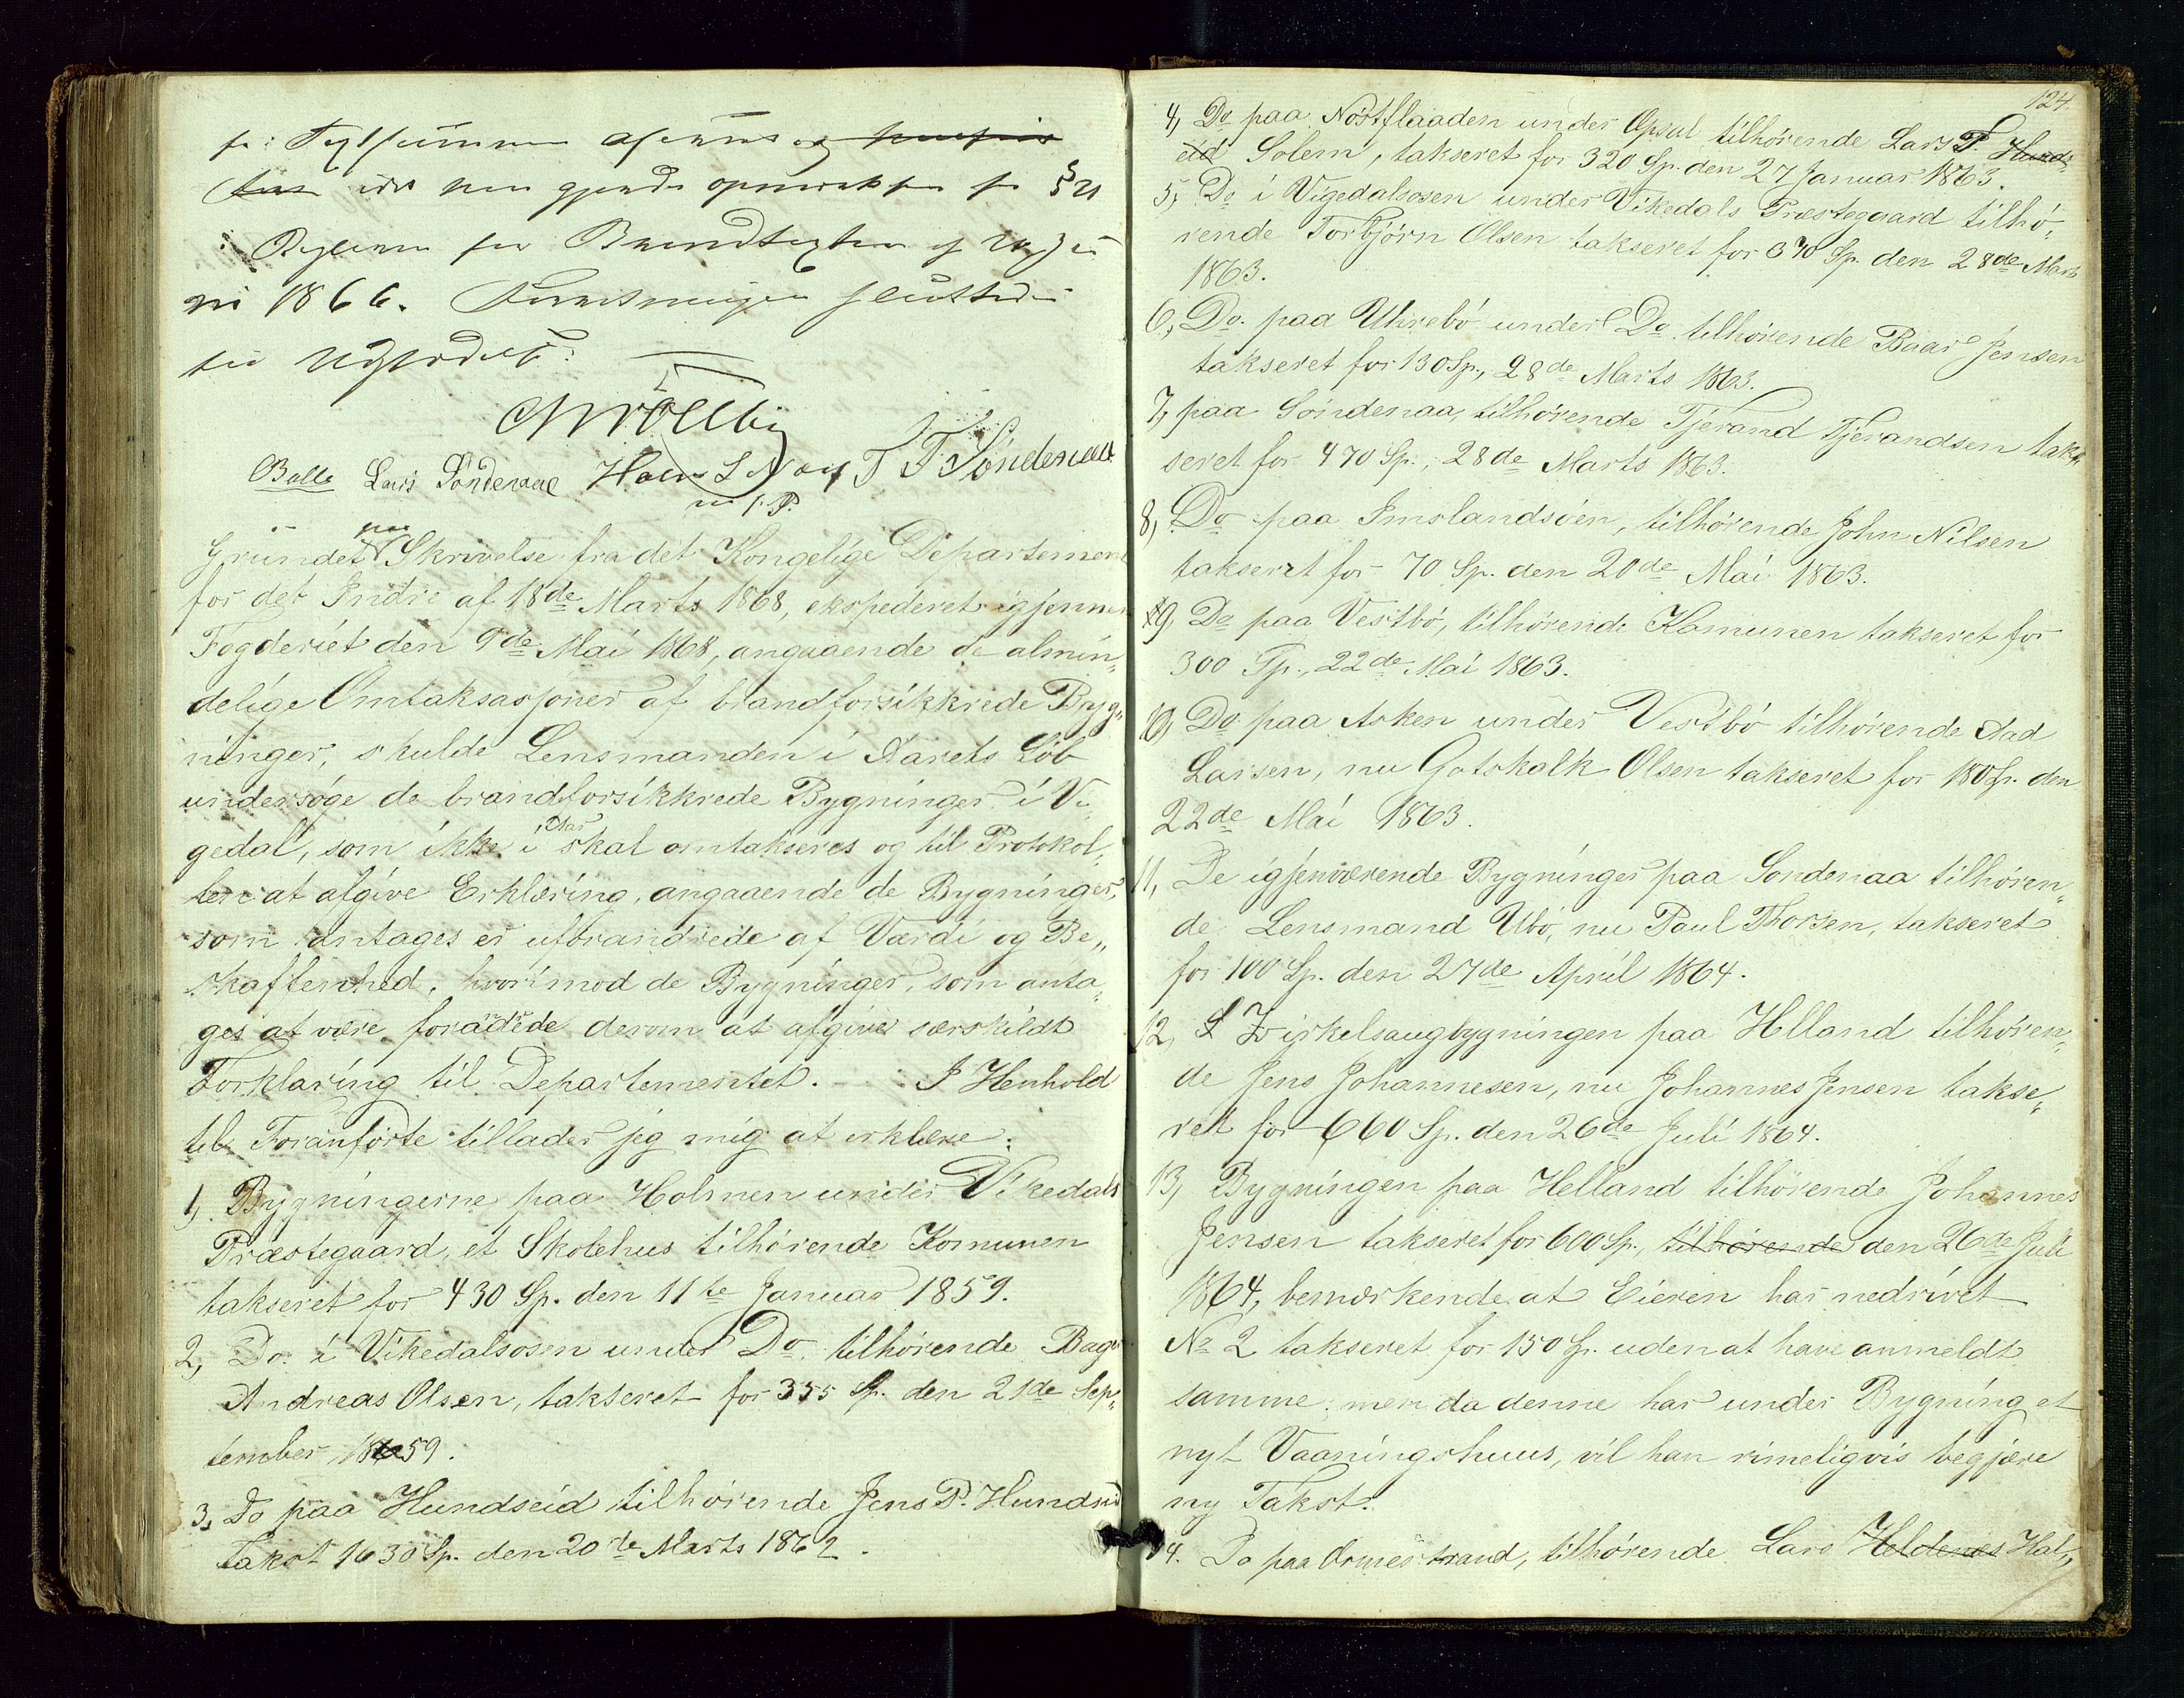 1866.
Lars Söndenaa T T Söndenaa
m. f. P.
Grundet Skrivelse fra det Kongelige Departement
for det Indre af 18de Marts 1868, ekspederet igjennem
Fogderiet den 9de Mai 1868, angaaende de almin„
delige Omtaksasjoner af brandforsikkrede Byg„
ninger, skulde Lensmanden i Aarets Löb
undersöge de brandforsikkrede Bygninger i Vi„
gedal, som ikke i Aar skal omtakseres og til Protokol„
len at afgive Erklæring, angaaende de Bygninger,
som antages er uforandrede af Værdi og Be„
skaffenhed, hvorimod de Bygninger, som anta„
ges at være forandrede derom at afgive særskildt
Forklaring til Departementet. — I Henhold
til Foranförte tillader jeg mig at erklære:
1, Bygningerne paa Holmen under Vikedals
Præstegaard, et Skolehus tilhörende Komunen
takseret for 430 Sp. den 11te Januar 1859.
2, Do. i Vikedalsosen under Do. tilhörende Bager
Andreas Olsen, takseret for 355 Sp. den 21de Sep„
tember 1859.
3, Do paa Hundseid tilhörende Jens P. Hundseid
Takst 1630 Sp. den 20de Marts 1862.
124.
4, Do paa Nöstflaaden under Opsal tilhörende Lars T. Hunds
eid Solem, takseret for 320 Sp. den 27 Januar 1863.
5, Do i Vigedalsosen under Vikedals Præstegaard tilhö„
rende Torbjörn Olsen takseret for 370 Sp. den 28de Marts
1863.
6, Do. paa Uhrebö under Do tilhörende Baar Jensen
takseret for 130 Sp., 28de Marts 1863.
7, paa Söndenaa, tilhörende Tjerand Tjerandsen tak„
seret for 470 Sp., 28de Marts 1863.
8, Do paa Imslandsöen, tilhörende John Nilsen
takseret for 70 Sp. den 20de Mai 1863.
9, Do paa Vestbö, tilhörende Komunen takseret for
300 Sp., 22de Mai 1863.
10, Do paa Asken under Vestbö tilhörende Aad
Larsen, nu Gotskalk Olsen takseret for 180 Sp. den
22de Mai 1863.
11, De igjenværende Bygninger paa Söndenaa tilhören„
de Lensmand Ubö, nu Paul Thorsen, takseret
for 100 Sp. den 27de April 1864.
12, Zirkelsaugbygningen paa Helland tilhören„
de Jens Johannesen, nu Johannes Jensen takse„
ret for 660 Sp. den 26de Juli 1864.
13, Bygningen paa Helland tilhörende Johannes
Jensen takseret for 600 Sp., tilhörende den 26de Juli
1864, bemærkende at Eieren har nedrivet
No 2 takseret for 150 Sp. uden at have anmeldt
samme: men da denne har under Bygning et
nyt Vaaningshuus, vil han rimeligvis begjære
ny Takst.
14. Do paa Ormestrand, tilhörende Lars Heldenes Hal„